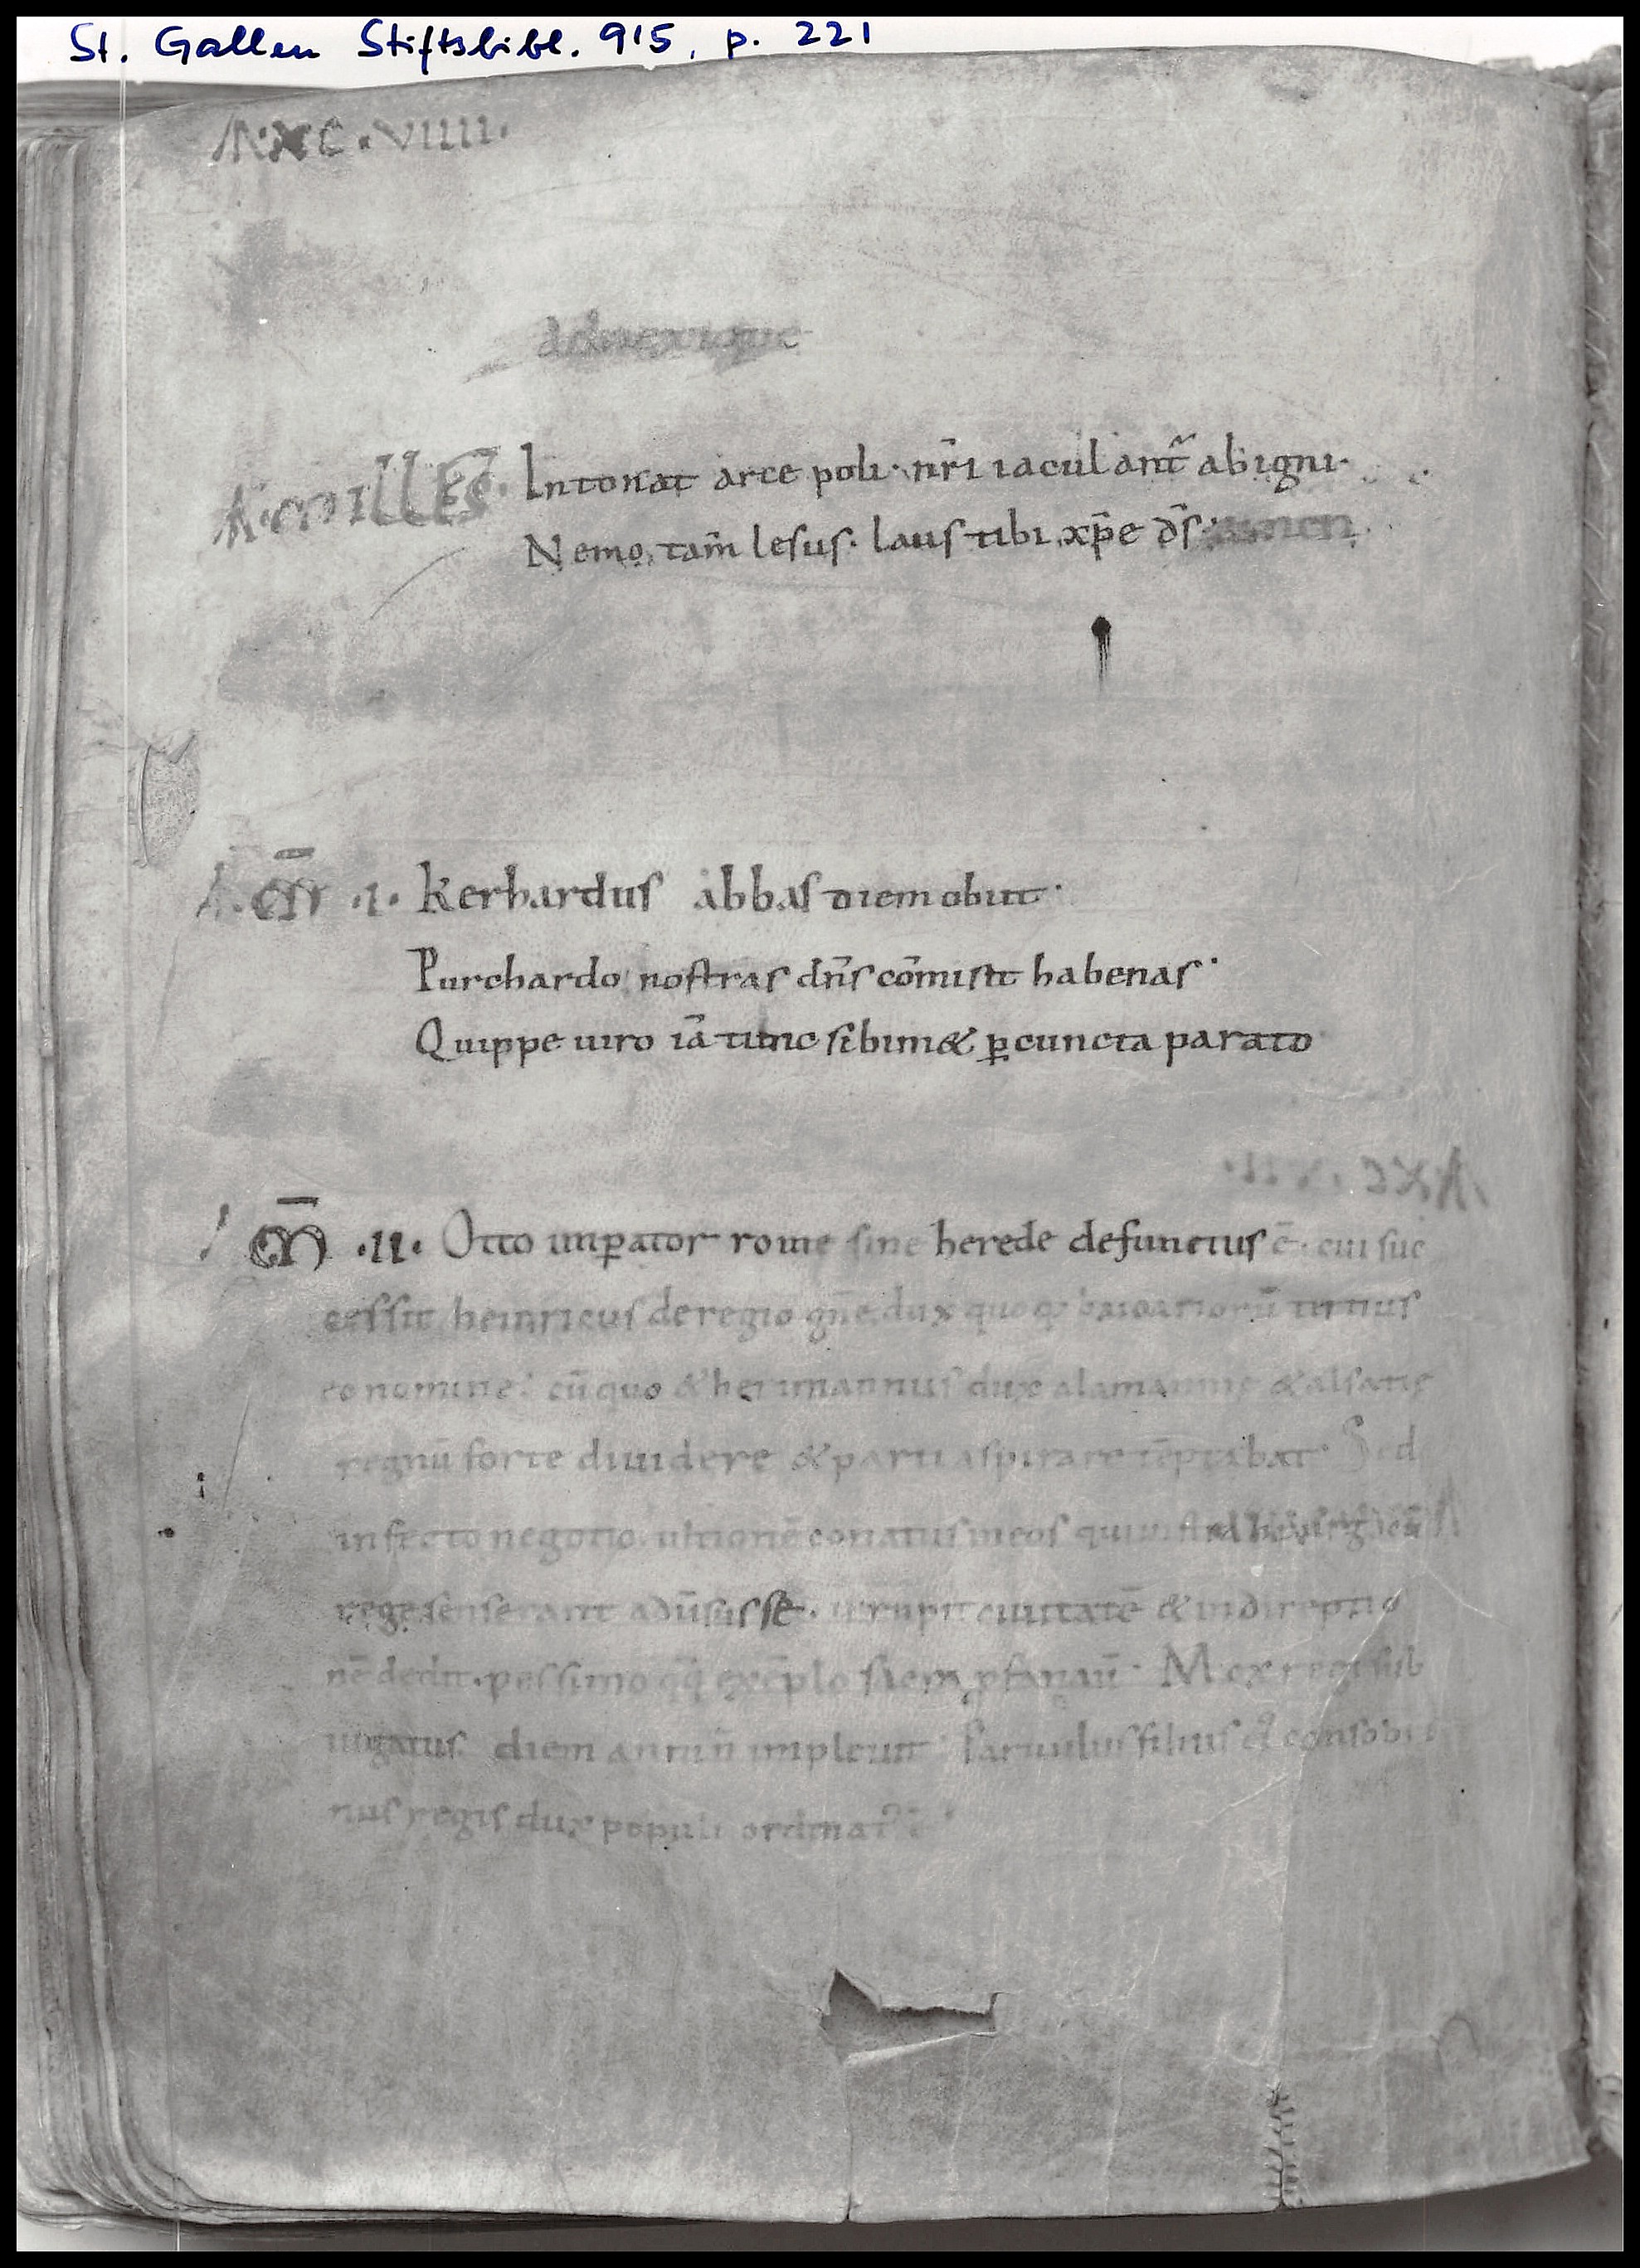 St. Gallen Stiftsbibl. 915, p. 221
A·XC·VIIII·
A·MILLES̄· Intonat arce poli· nr̄i iaculant̄ ab igni·
Nemo tam̄ lesus· laus tibi xp̄e d̄s· amen
A·M̄·I· kerhardus abbas diem obiit·
Purchardo nostras dn̄s cōmisit habenas·
Quippe uiro iā tunc sibimet ꝑ cuncta parato
M̄·II· Otto imꝑator rome sine herede defunctus ē· cui suc
cessit heinricus de regio gn̄e dux quoqꝫ baioariorū
eo nomine· cū quo & herimannus dux alamannię & alsatię
regnū forte diuidere & parti aspirare tēptabat· Sed
infecto negotio ultionē conatus in eos qui
rege senserant adū sus sē· irrupit ciuitatē & in direptio
nē dedit· pessimo exēplo Mox regi sub
iugatus diem annū impleuit· Paruulus filius consobri
nus regis dux populi ordinat᷒ ē